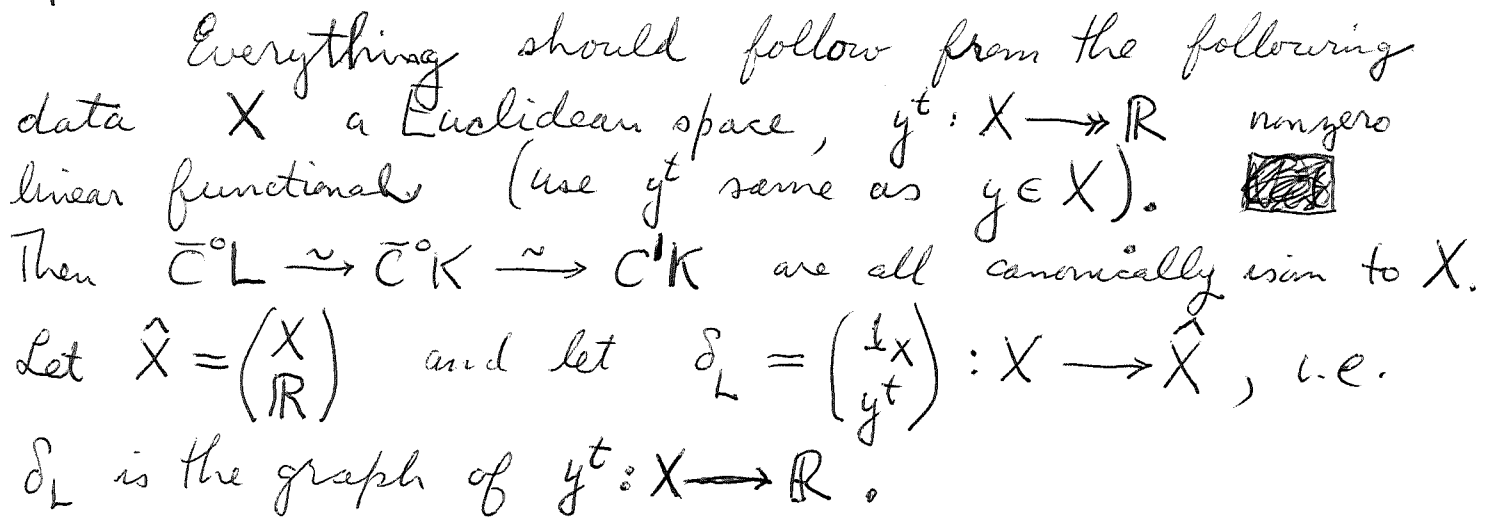 Everything should follow from the following
data X a Euclidean space, yᵗ : X ↠ ℝ nonzero
linear functional (use yᵗ same as y ∈ X).
Then C̄⁰L ⥲ C̄⁰K ⥲ C¹K are all canonically isom to X.
Let X̂ = (X ℝ) and let δ_L = (1_X yᵗ) : X ⟶ X̂, i.e.
δ_L is the graph of yᵗ : X ⟶ ℝ.